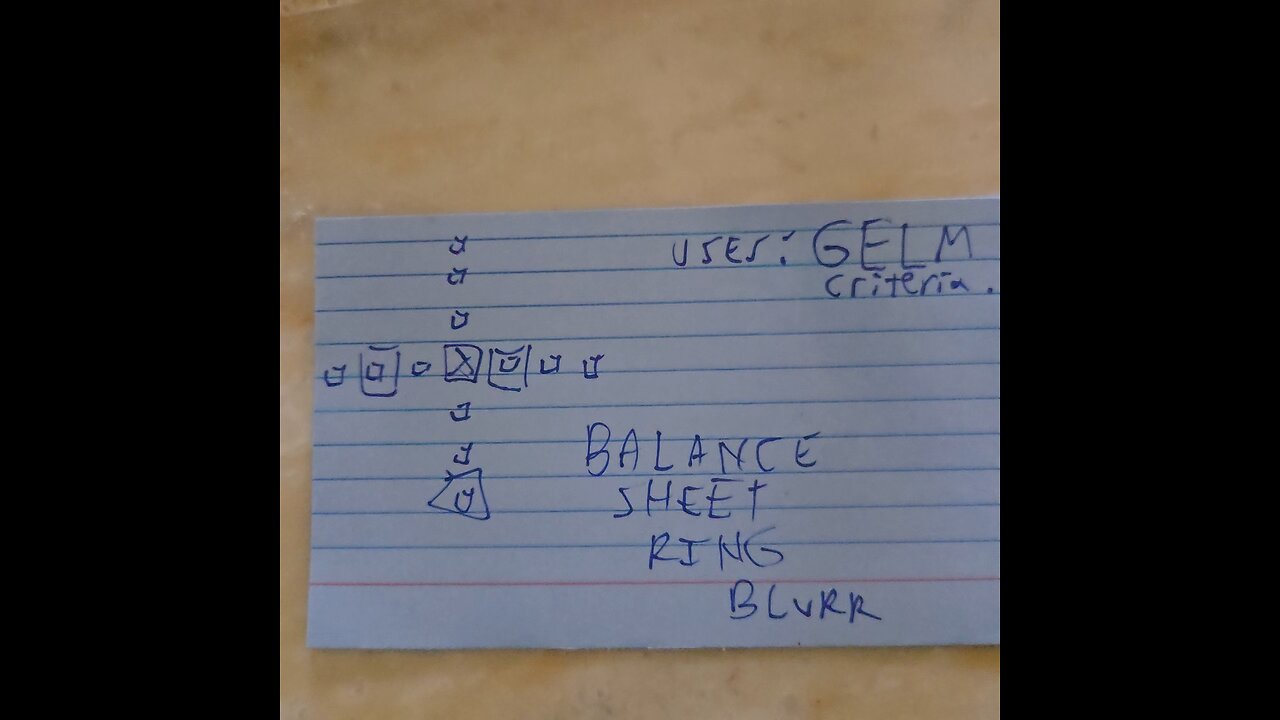 USES: GELM
criteria.
X
BALANCE
SHEET
RING
BLURR